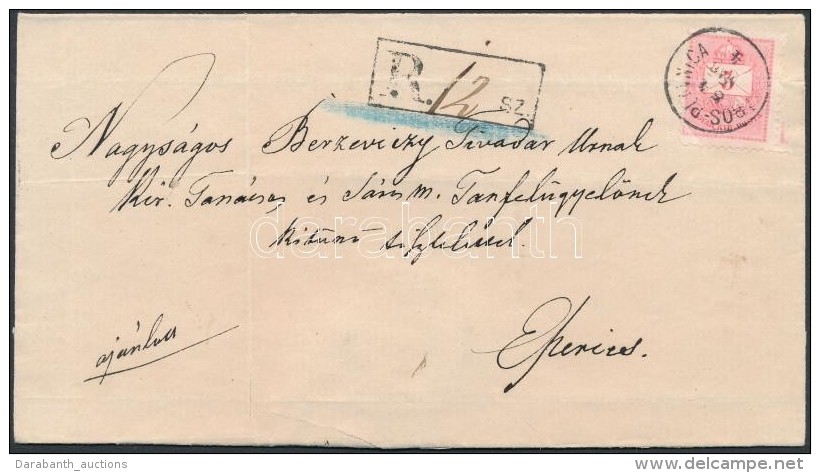 R. 12 SZ.
Nagyságos Berzeviczy Tivadar Urnak
Kir. Tanácsos és Sáros m. Tanfelügyelőnek
kitünő tisztelettel.
Eperies.
ajánlva
darabanth
Darabanth_auctions
www.delcampe.net